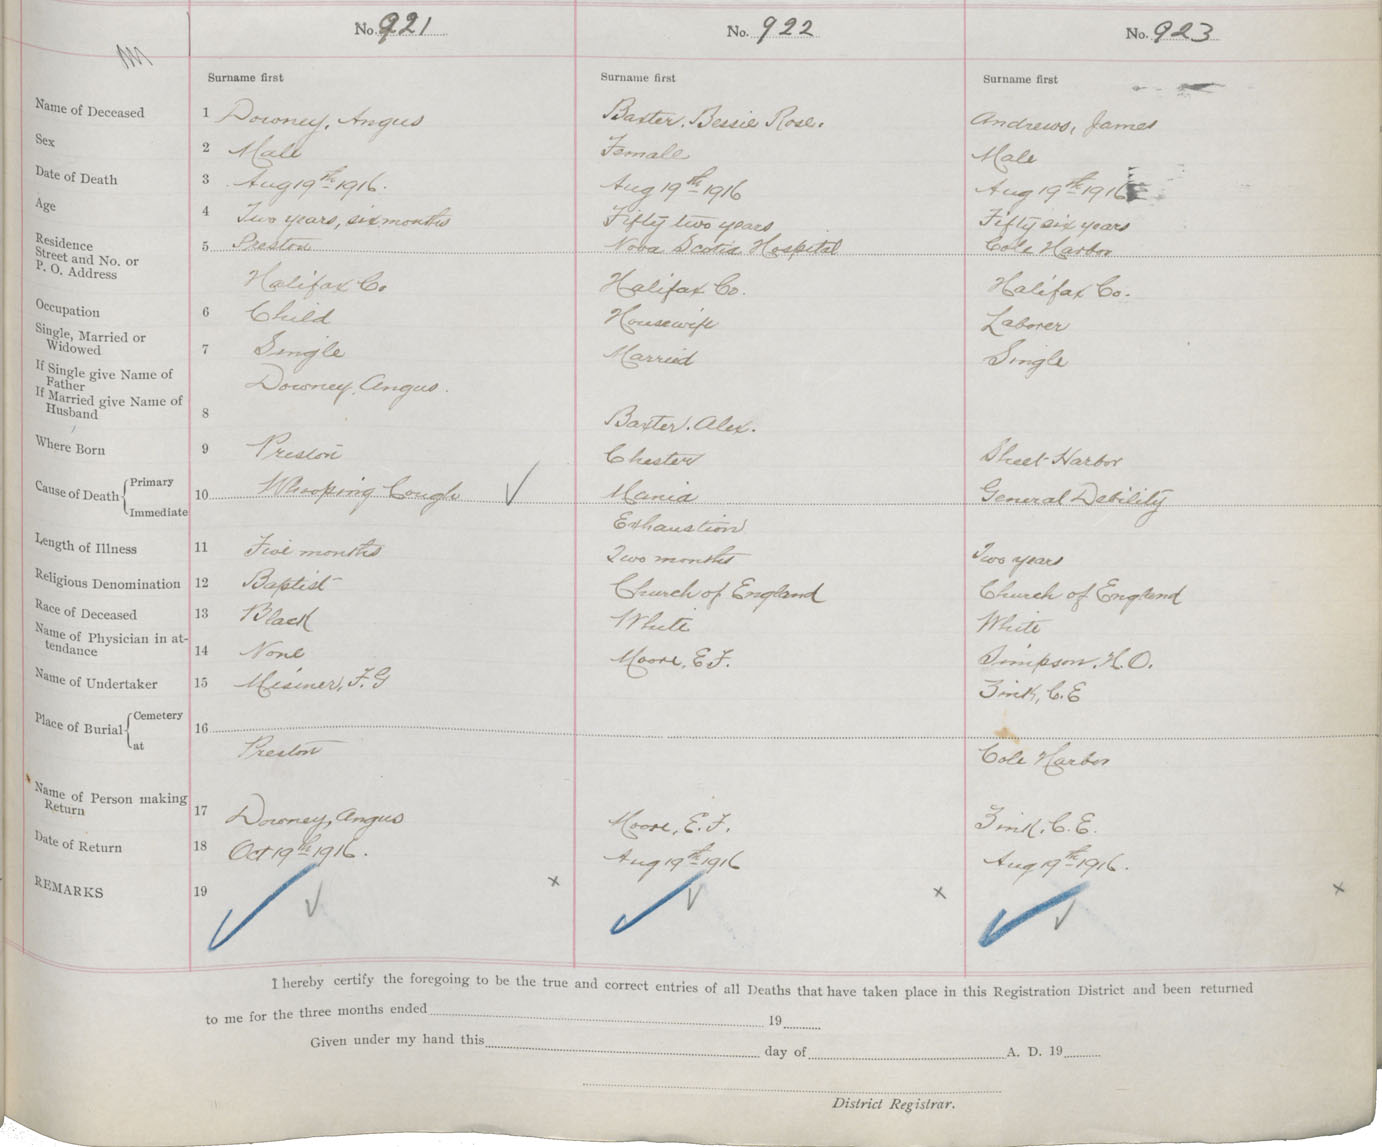 No. 921 No. 922 No. 923
Surname first Surname first Surname first
Name of Deceased 1 Downey, Angus Baxter, Bessie Rose. Andrews, James
Sex 2 Male Female Male
Date of Death 3 Aug 19th 1916. Aug 19th 1916 Aug 19th 1916
Age 4 Two years, six months Fifty two years Fifty six years
Residence
Street and No. or 5 Preston Nova Scotia Hospital Cole Harbor
P. O. Address Halifax Co Halifax Co. Halifax Co.
Occupation 6 Child Housewife Laborer
Single, Married or
Widowed 7 Single Married Single
If Single give Name of
Father Downey, Angus.
If Married give Name of
Husband 8 Baxter, Alex.
Where Born 9 Preston Chester Sheet Harbor
Cause of Death Primary 10 Whooping Cough Mania General Debility
Immediate Exhaustion
Length of Illness 11 Five months Two months Two years
Religious Denomination 12 Baptist Church of England Church of England
Race of Deceased 13 Black White White
Name of Physician in at-
tendance 14 None Moore, E.F. Simpson, H.O.
Name of Undertaker 15 Misiner, F.G Zink, C.E
Place of Burial Cemetery 16
at Preston Cole Harbor
Name of Person making
Return 17 Downey, Angus Moore, E.F. Zink, C.E.
Date of Return 18 Oct 19th 1916. Aug 19th 1916 Aug 19th 1916.
REMARKS 19 x x x
I hereby certify the foregoing to be the true and correct entries of all Deaths that have taken place in this Registration District and been returned
to me for the three months ended 19
Given under my hand this day of A. D. 19
District Registrar.